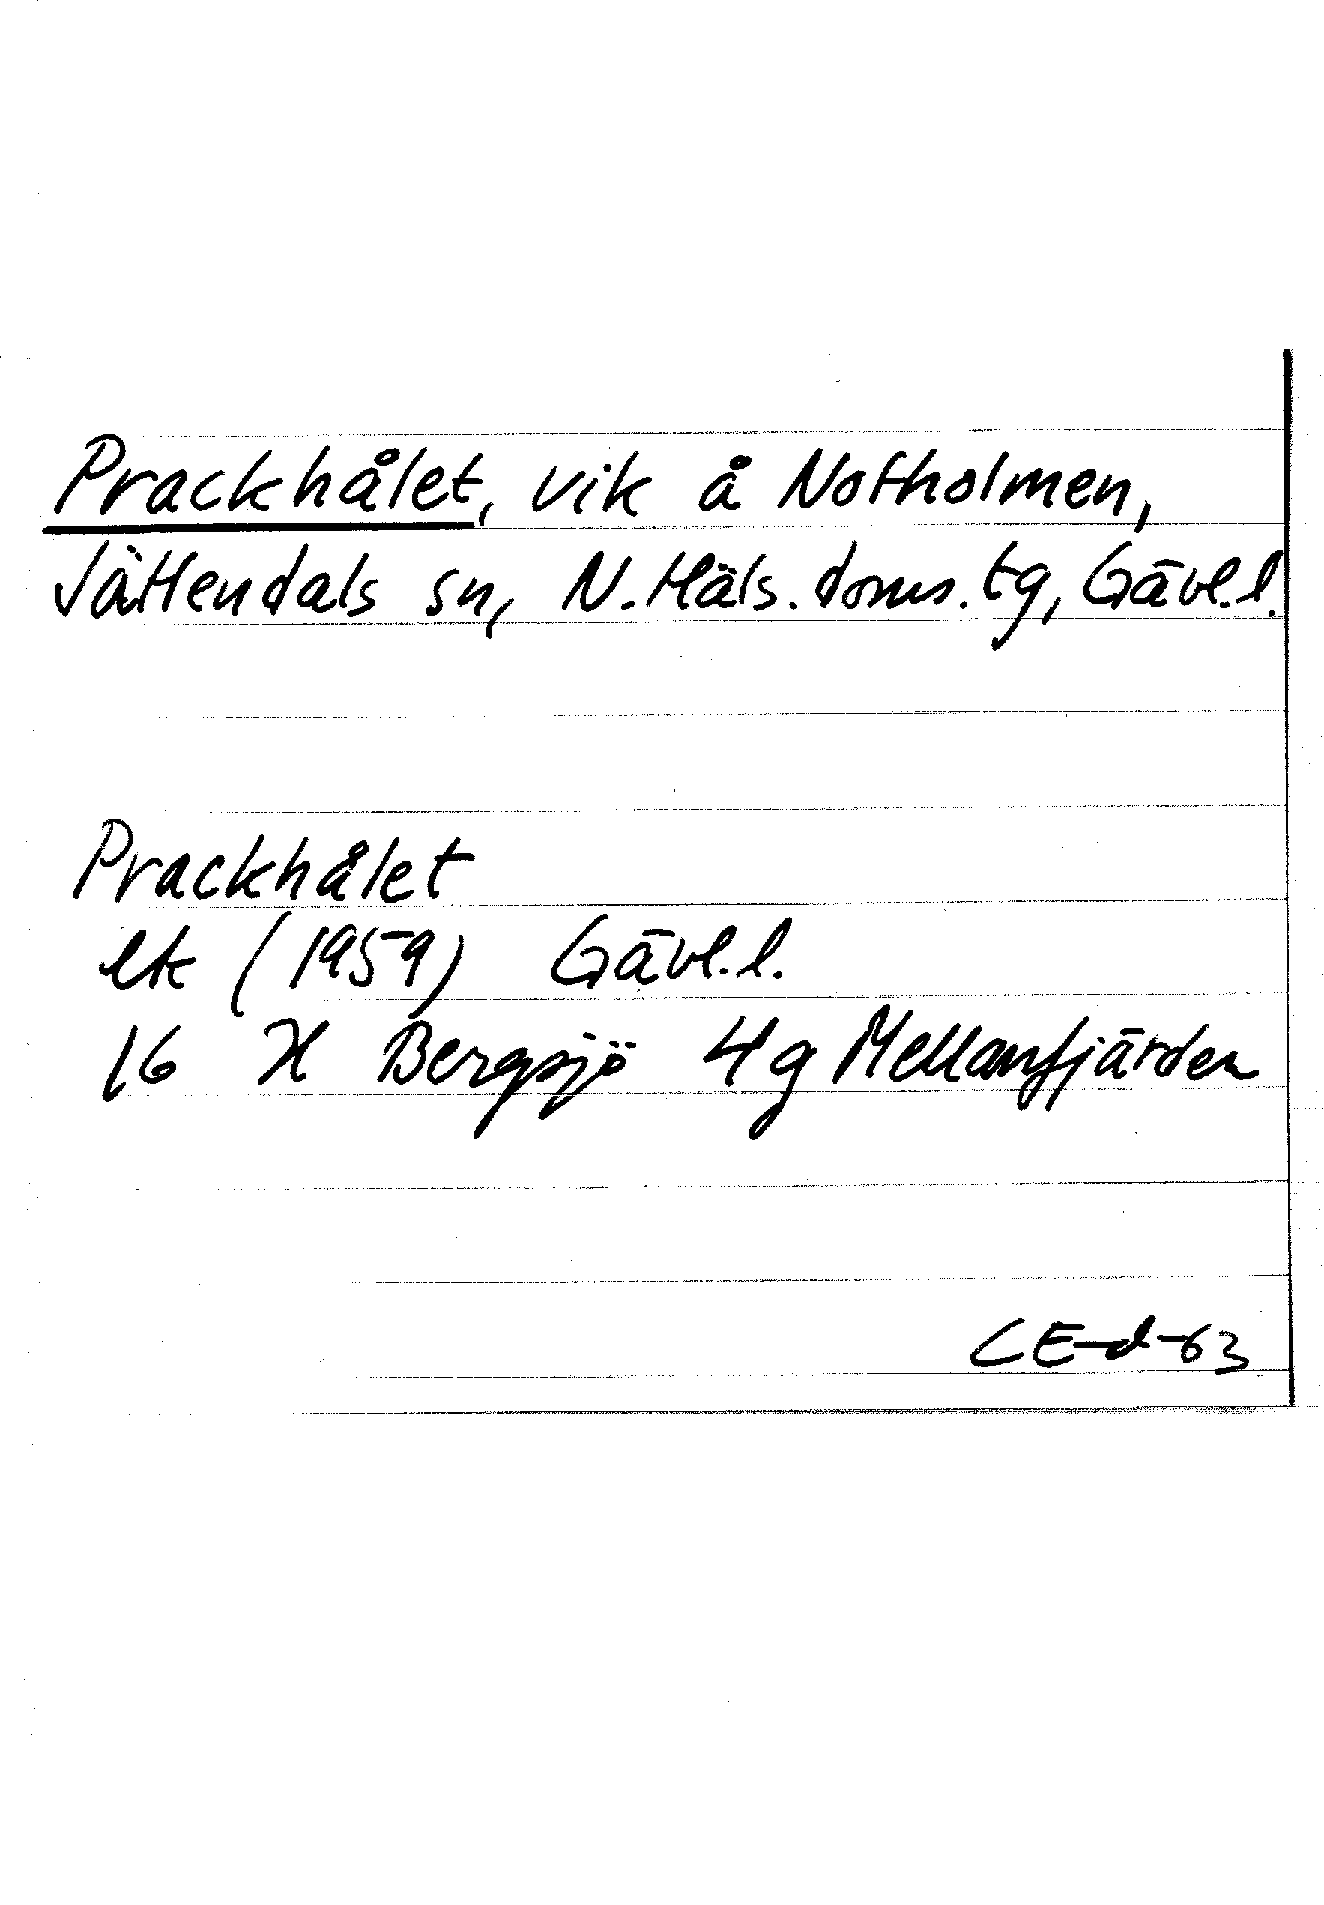 Prackhålet, vik å Notholmen,
Jättendals sn, N. Häls. doms. tg, Gävl. l.
Prackhålet
ek (1959) Gävl. l.
16 H Bergsjö 4g Mellanfjärden
CE-d-63